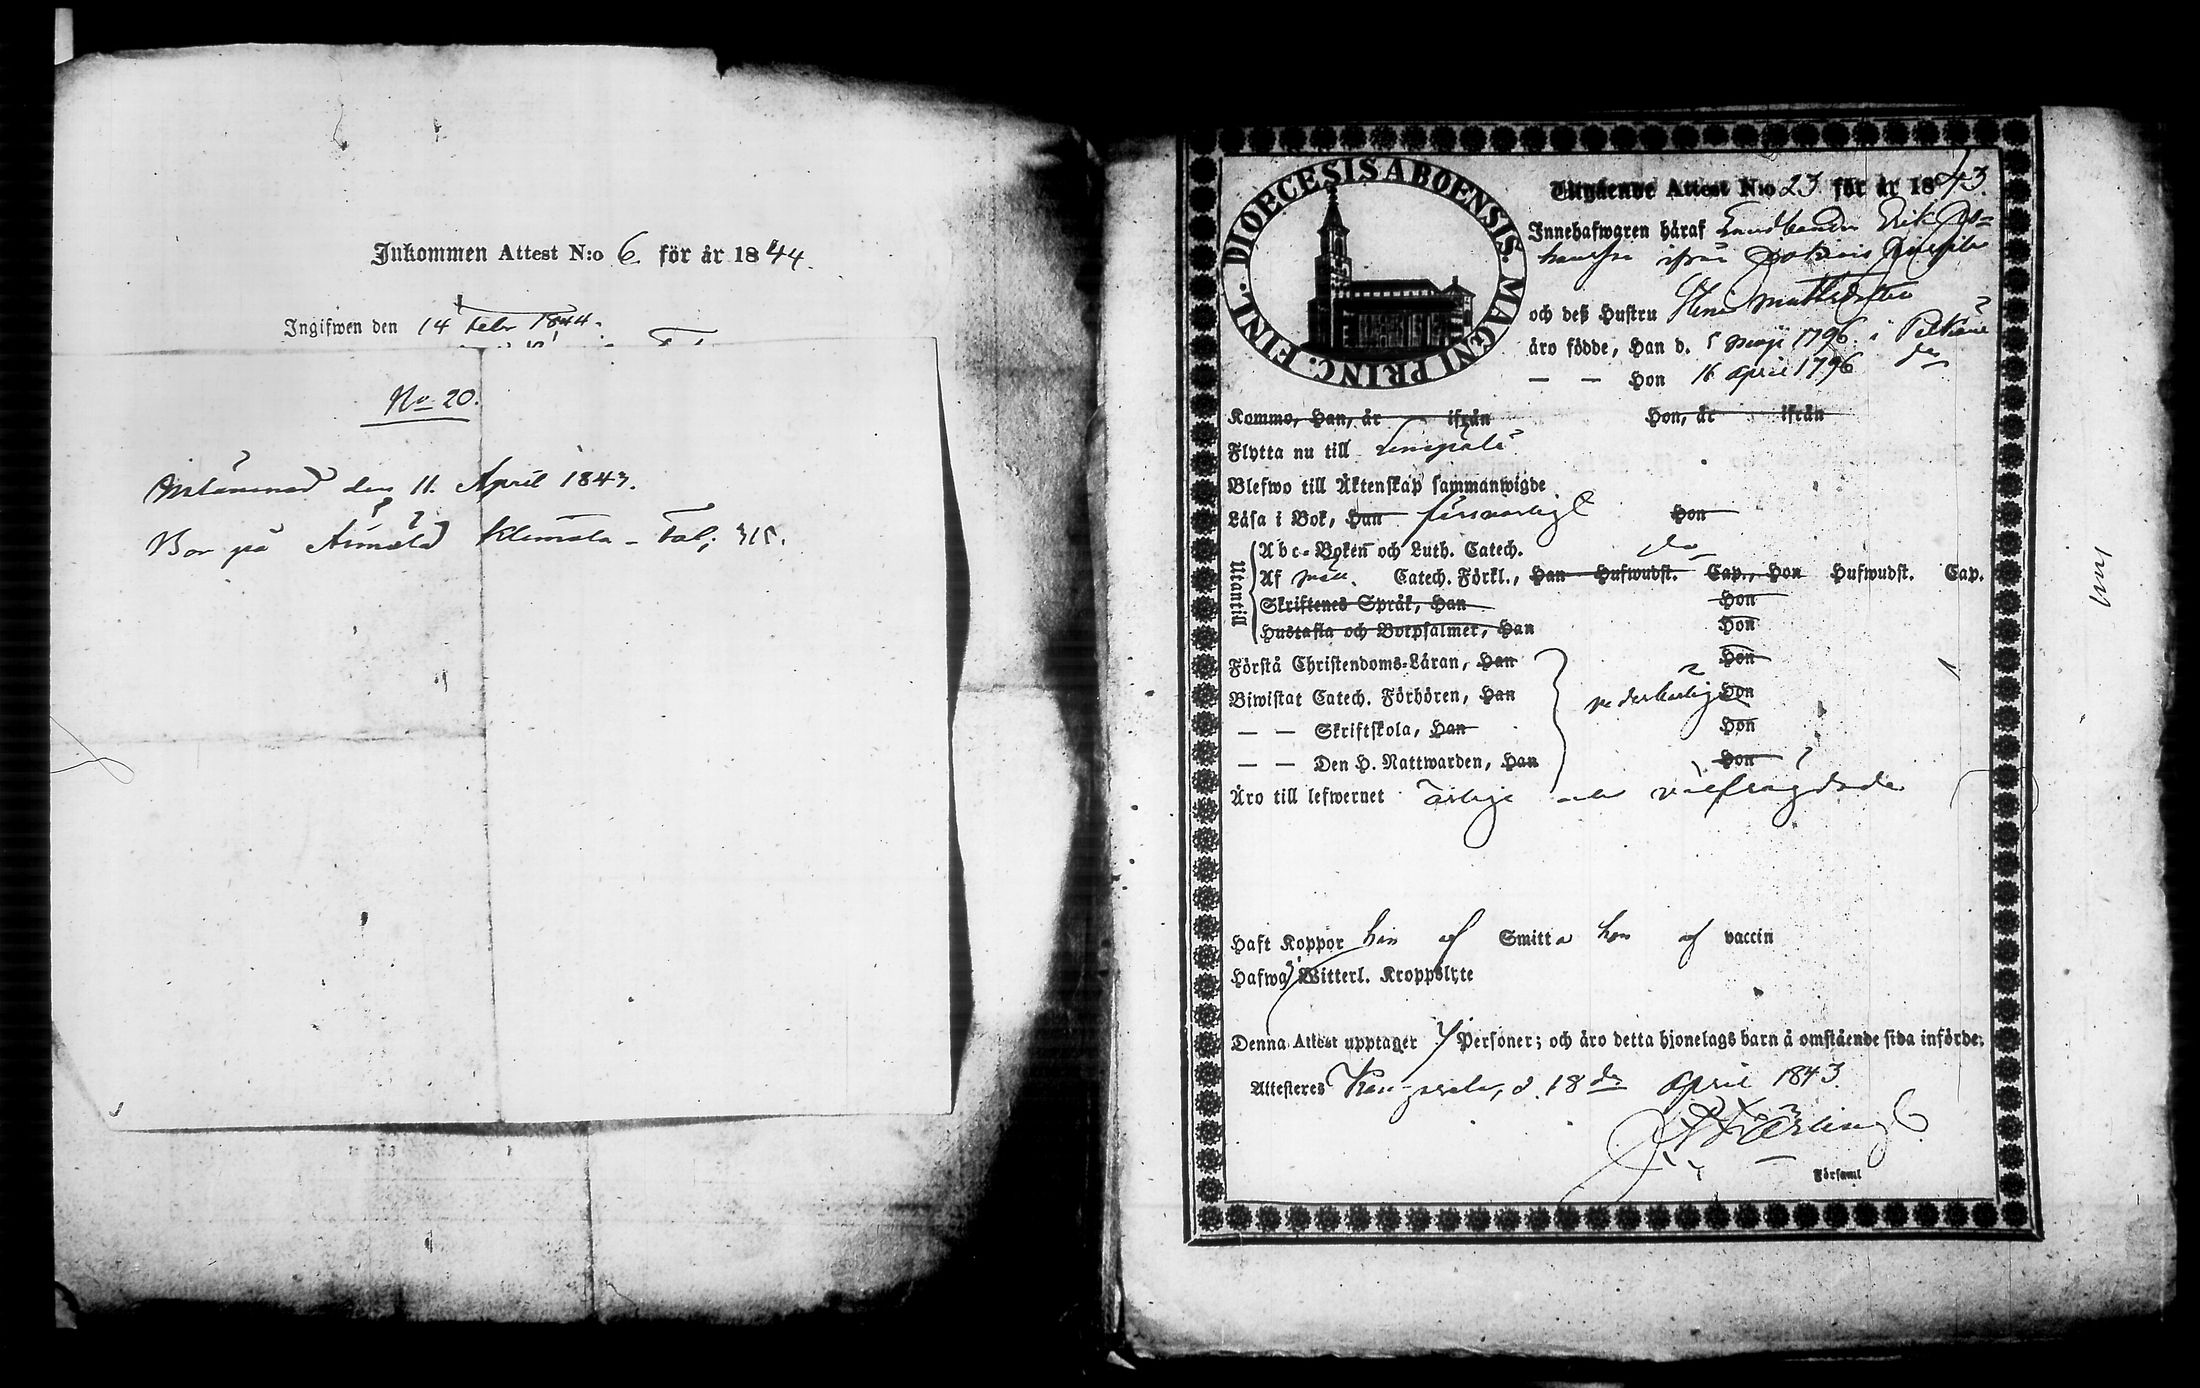 Inkommen Attest N:o 6 för år 1844.
Ingifwen den 14 Febr 1844.
No 20.
den 11. April 1843.
Bor på Klemola - Fol; 315.
DIOECESIS ABOENSIS. MAGNI PRINC. FINL.
Utgående Attest N:o 23 för år 1843.
Innehafwaren häraf Landbonden Erik Jo-
hansson ifrån
och deß Hustru Mattsdotter
äro födde, Han d. 5 Maji 1796. i Pelkäne
— — Hon 16 April 1796 do
Kommo, Han, år ifrån Hon, år ifrån
Flytta nu till Lempälä
Blefwo till Äktenskap sammanwigde
Läsa i Bok, Han försvarligt Hon
Utantill
Abc-Boken och Luth. Catech. do
Af Catech. Förkl., Han Hufwudst. Cap., Hon Hufwudst. Cap.
Skriftenes Språk, Han Hon
Hustafla och Botpsalmer, Han Hon
Förstå Christendoms-Läran, Han Hon
Biwistat Catech. Förhören, Han vederbörligen Hon
— — Skriftskola, Han Hon
— — Den H. Nattwarden, Han Hon
Äro till lefwernet ärlige och välfrägdade
Haft Koppor han af Smitta hon af vaccin
Hafwa Witterl. Kroppslyte
Denna Attest upptager 7 Personer; och äro detta hjonelags barn å omstående sida införde.
Attesteras Kangasala, d. 18de April 1843.
Församl